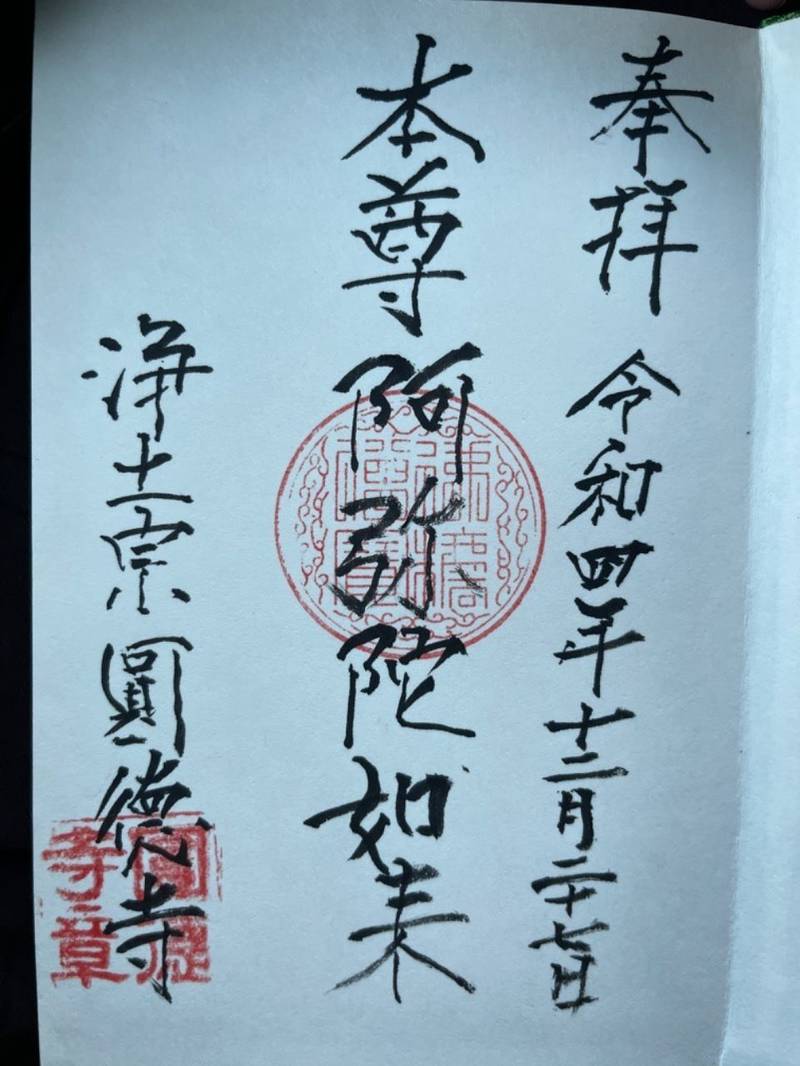 奉拝 令和四年十二月二十七日
本尊 阿弥陀如来
浄土宗 圓徳寺
圓徳寺章